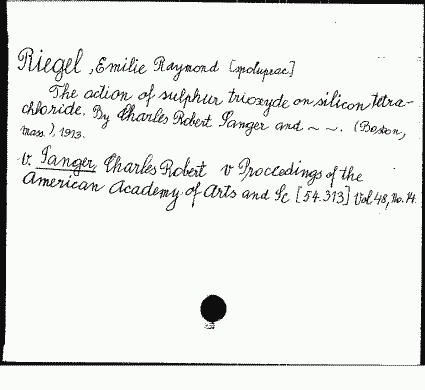 Riegel, Emilie Raymond
The action of sulphur trioxyde on silicon tetra-
chloride. By Charles Robert Sanger and ~ ~. (Boston,
Mass.), 1913.
v. Sanger, Charles Robert v Proceedings of the
American Academy of Arts and Sc [54.313] Vol 48, no. 14.